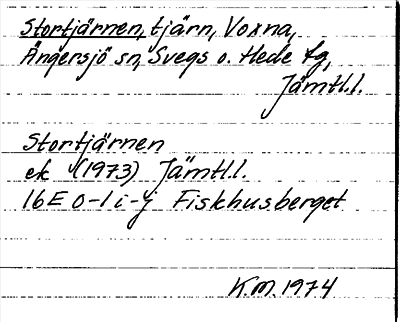 Stortjärnen, tjärn, Voxna,
Ängersjö sn, Svegs o. Hede tg,
Jämtl.l.
Stortjärnen
ek (1973) Jämtl.l.
16E 0-1 i-j Fiskhusberget
K.M. 1974